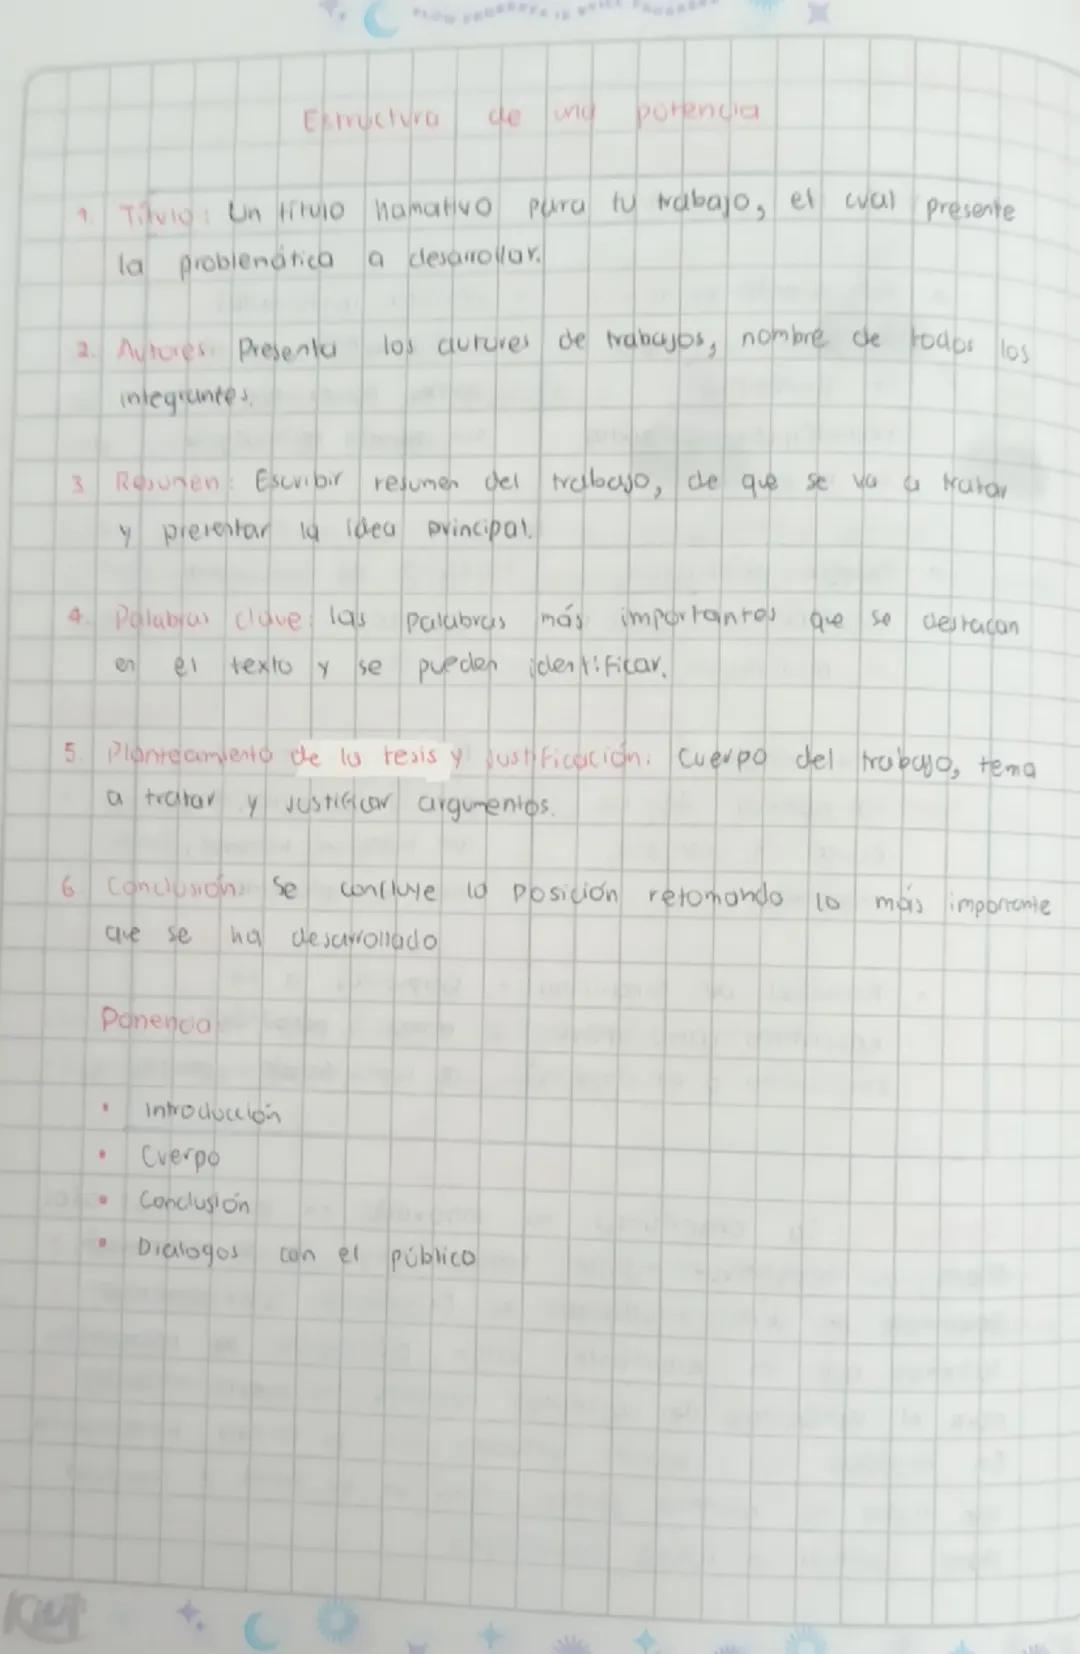 SLOW PROGRESS IS STILL PROGRESS
Estructura de una ponencia
1. Título: Un título llamativo para tu trabajo, el cual presente
la problemática a desarrollar.
2. Autores: Presenta los autores de trabajos, nombre de todos los
integrantes.
3 Resumen: Escribir resumen del trabajo, de que se va a tratar
y presentar la idea principal.
4. Palabras clave: las palabras más importantes que se destacan
en el texto y se pueden identificar.
5. Planteamiento de la tesis y justificación: Cuerpo del trabajo, tema
a tratar y justificar argumentos.
6 Conclusión: Se concluye la posición retomando lo más importante
que se ha desarrollado
Ponencia
• Introducción
• Cuerpo
• Conclusión
• Dialogos con el público
Kiut